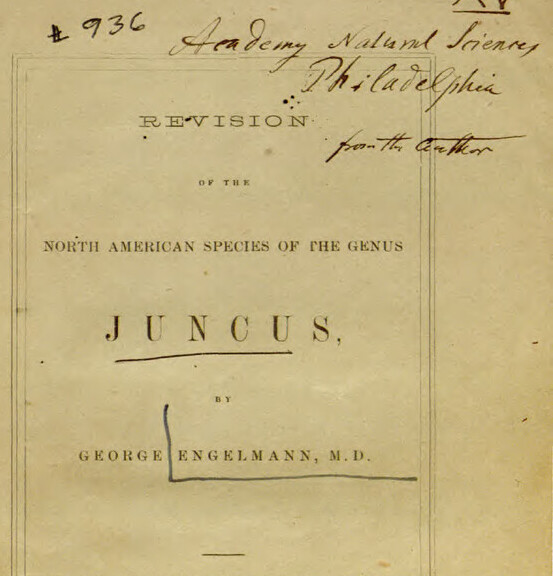 # 936
Academy Natural Sciences
Philadelphia
from the author
REVISION
OF THE
NORTH AMERICAN SPECIES OF THE GENUS
JUNCUS,
BY
GEORGE ENGELMANN, M.D.